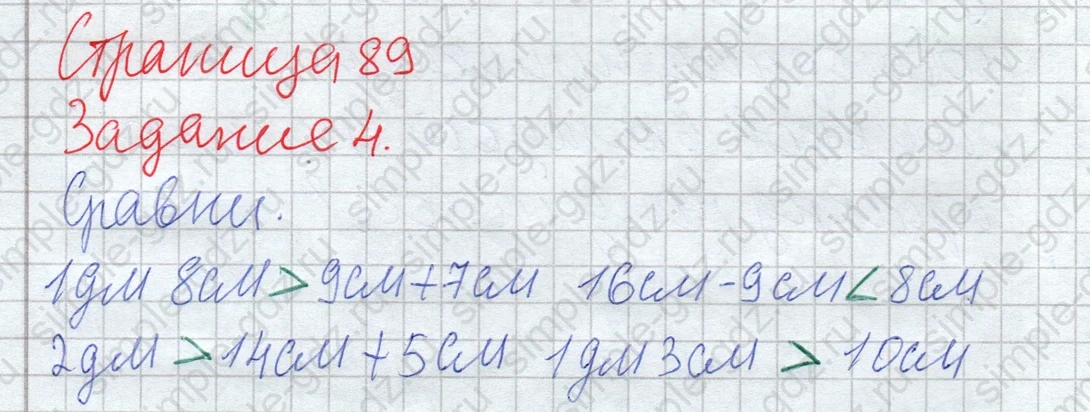 Страница 89
Задание 4.
Сравни.
1дм 8см > 9см + 7см 16см - 9см < 8см
2дм > 14см + 5см 1дм 3см > 10см
simple-gdz.ru